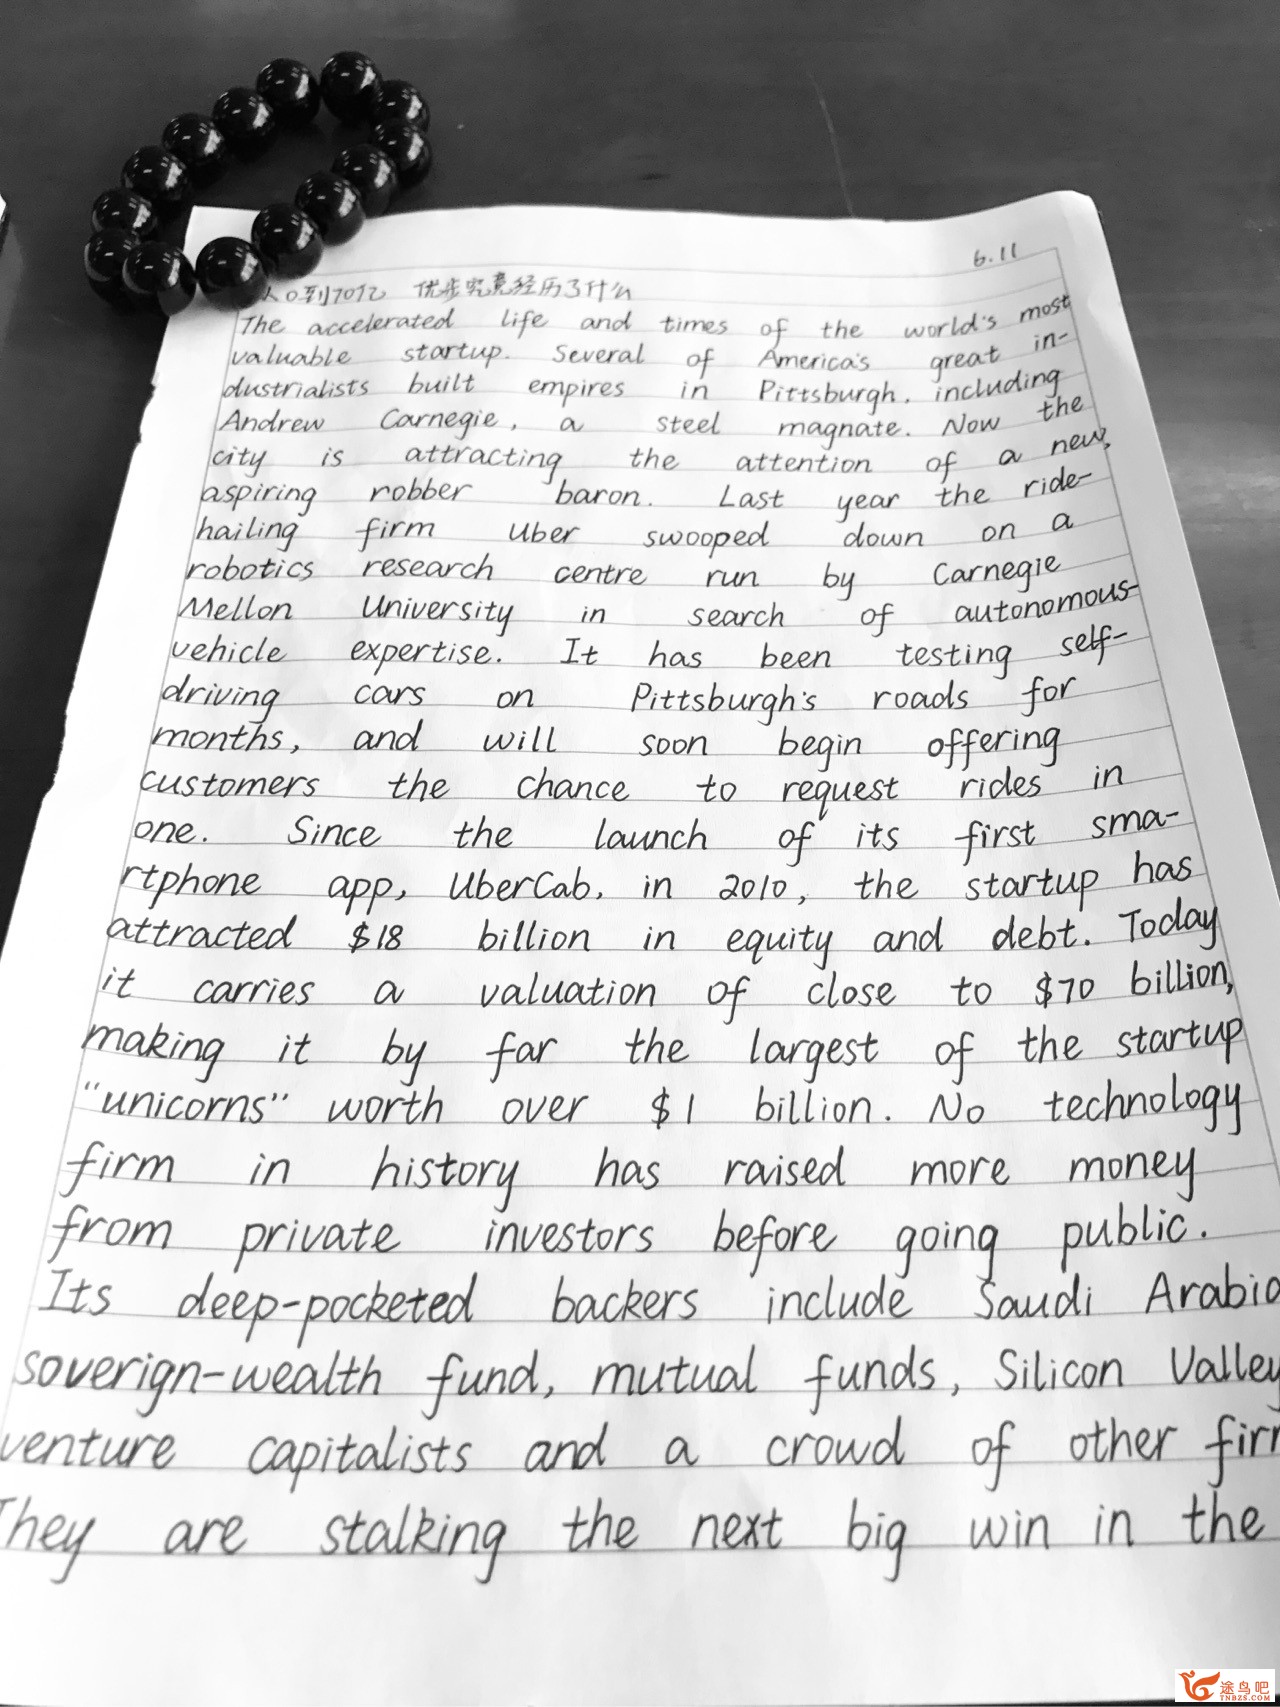 6.11
人0到70亿 优步究竟经历了什么
The accelerated life and times of the world's most
valuable startup. Several of America's great in-
dustrialists built empires in Pittsburgh, including
Andrew Carnegie, a steel magnate. Now the
city is attracting the attention of a new,
aspiring robber baron. Last year the ride-
hailing firm Uber swooped down on a
robotics research centre run by Carnegie
Mellon University in search of autonomous-
vehicle expertise. It has been testing self-
driving cars on Pittsburgh's roads for
months, and will soon begin offering
customers the chance to request rides in
one. Since the launch of its first sma-
rtphone app, UberCab, in 2010, the startup has
attracted $18 billion in equity and debt. Today
it carries a valuation of close to $70 billion,
making it by far the largest of the startup
"unicorns" worth over $1 billion. No technology
firm in history has raised more money
from private investors before going public.
Its deep-pocketed backers include Saudi Arabia
soverign-wealth fund, mutual funds, Silicon Valley
venture capitalists and a crowd of other fir
They are stalking the next big win in the
途鸟吧
TNBZS.COM